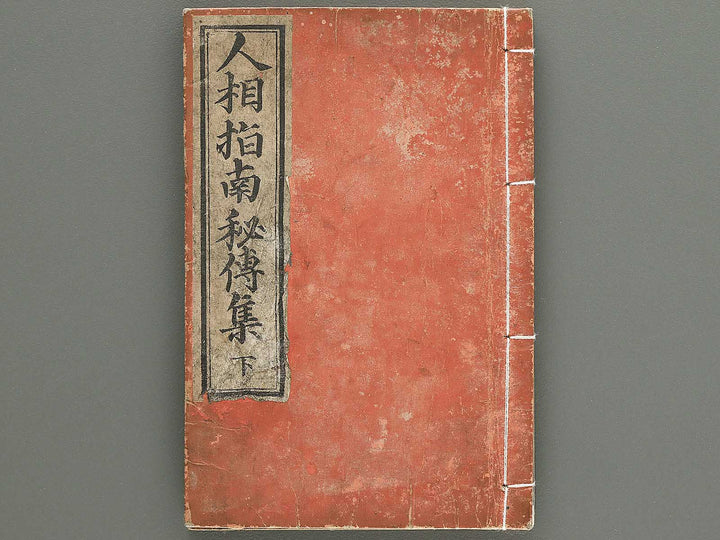 人相指南秘傳集 下